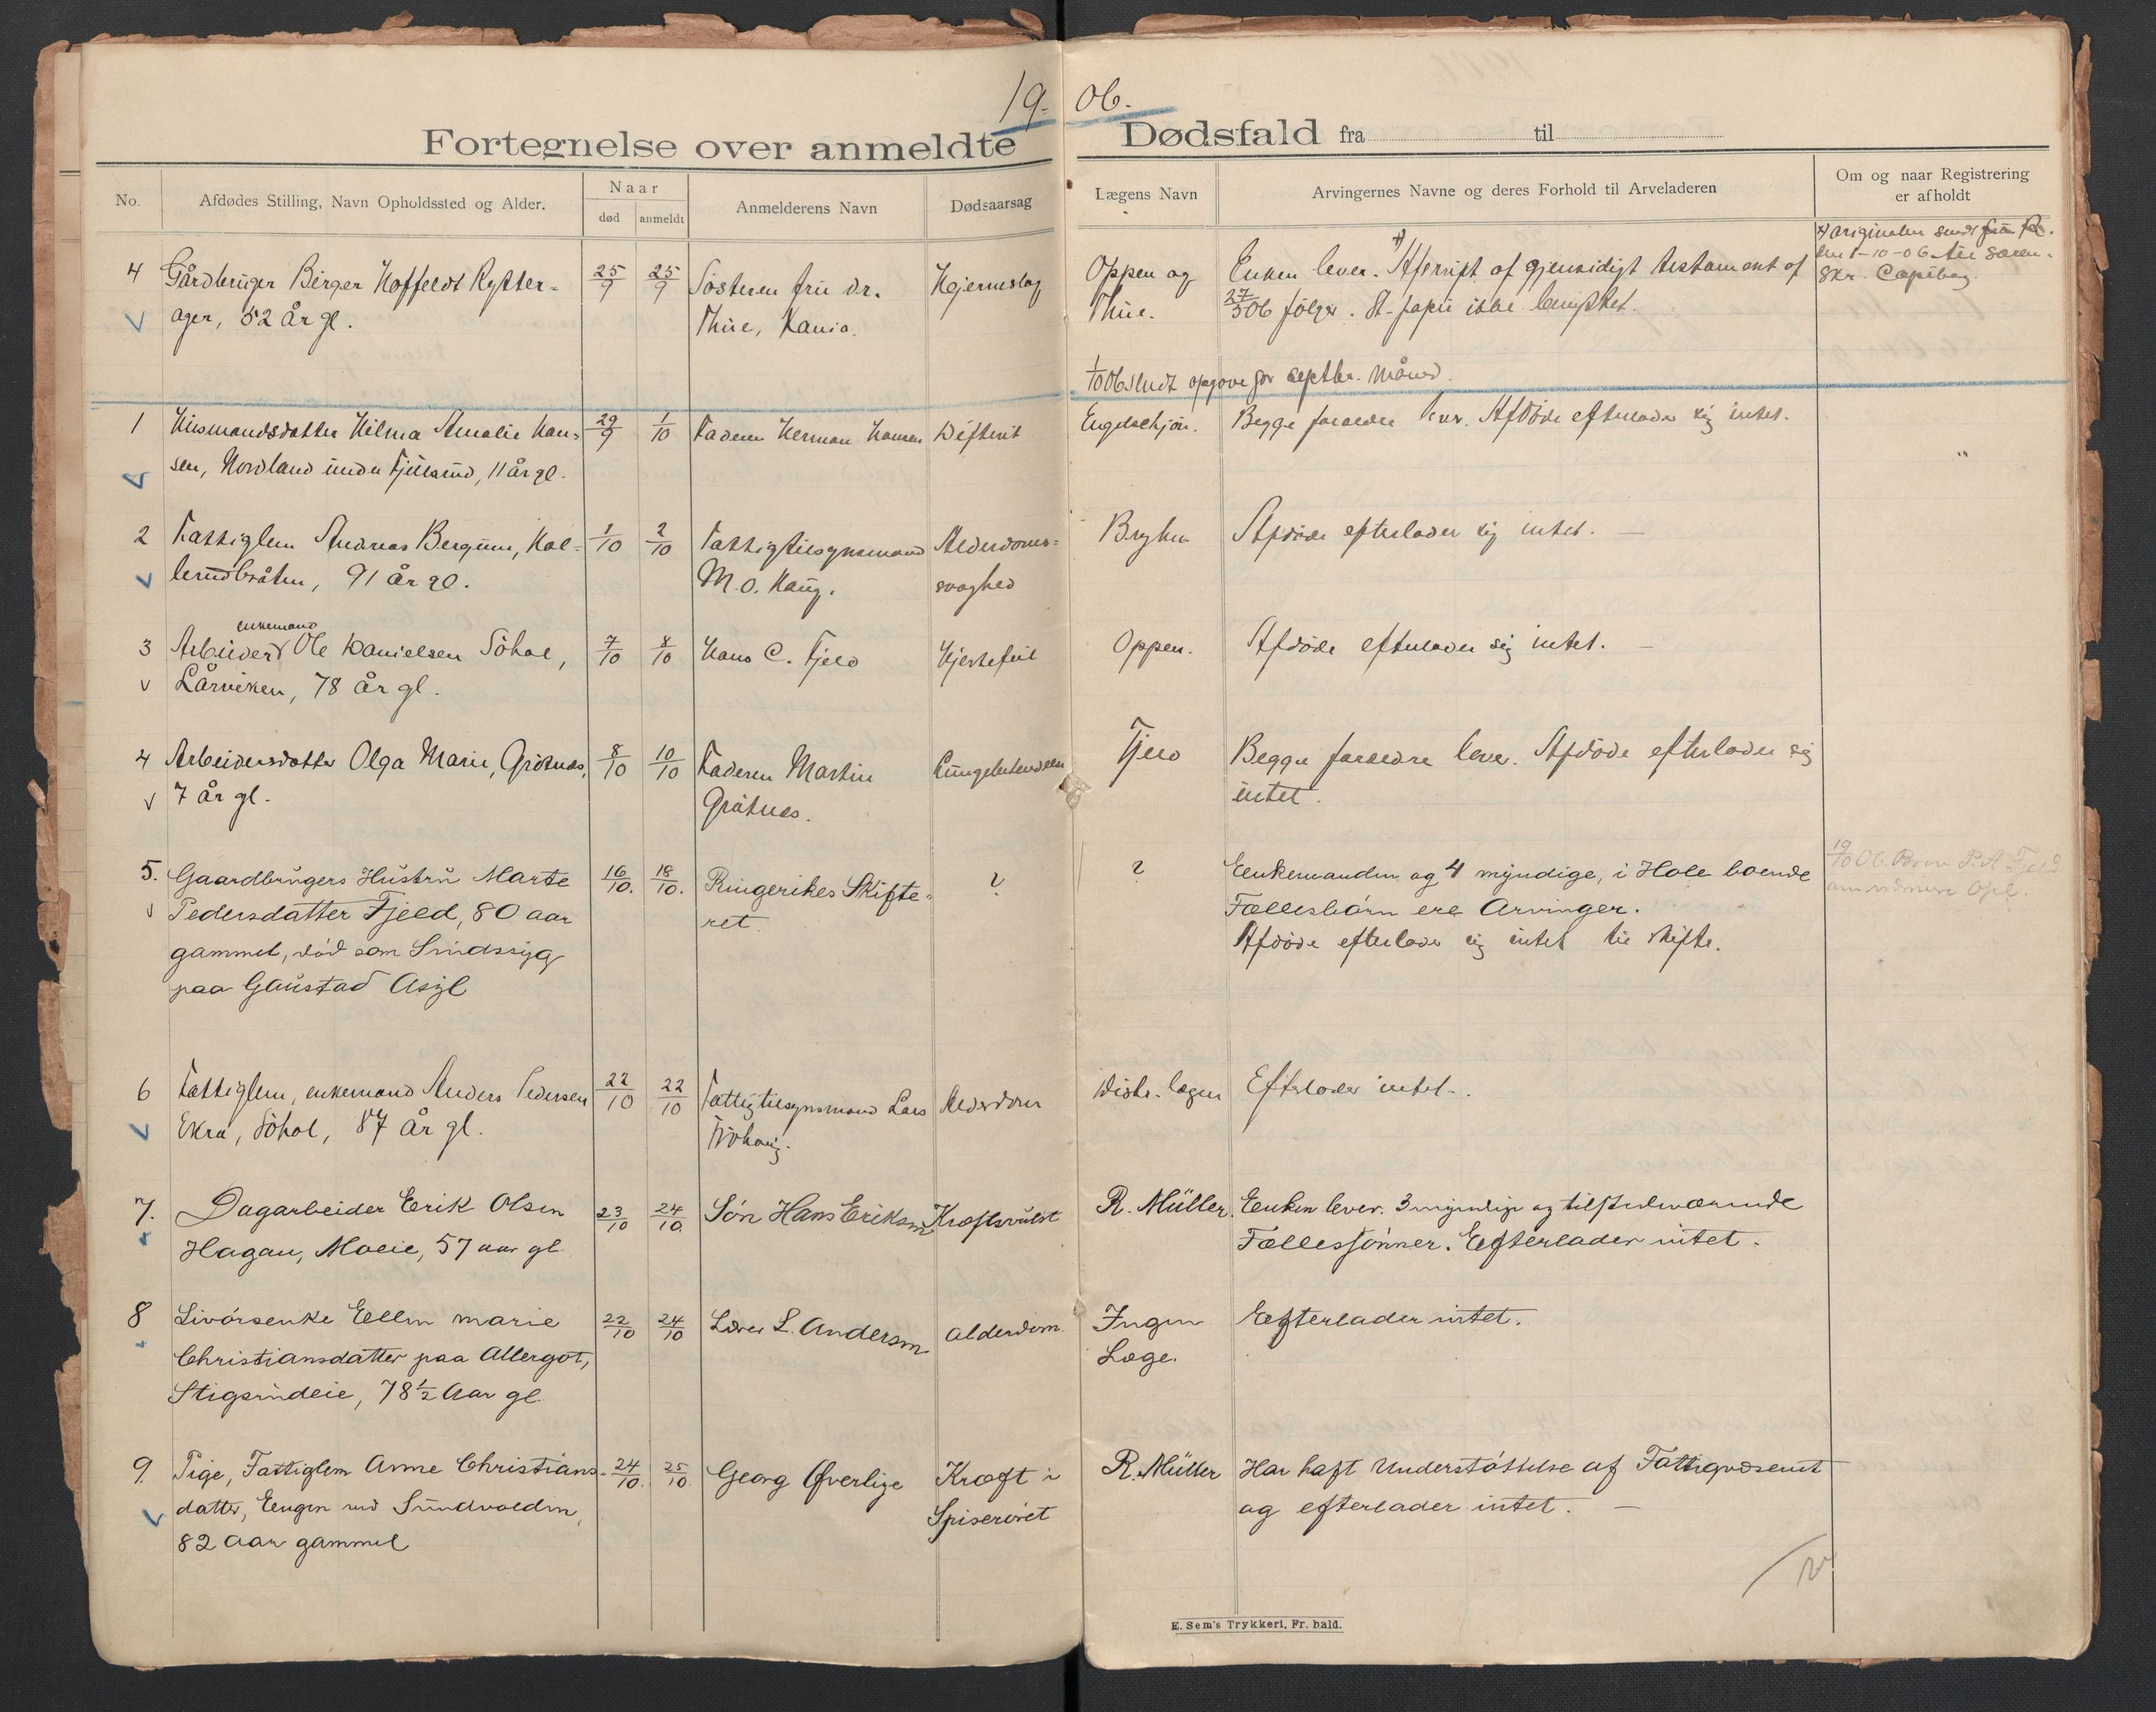 19 06.
Fortegnelse over anmeldte Dødsfald fra til
No.
Afdødes Stilling, Navn Opholdssted og Alder.
Naar
død
anmeldt
Anmelderens Navn
Dødsaarsag
Lægens Navn
Arvingernes Navne og deres Forhold til Arveladeren
Om og naar Registrering
er afholdt
4 Gårdbruger Birger Hoffeldt Rytter- 25/9 25/9 Søsteren fru dr. Hjerneslag Oppen og Enken lever. Afskrift af gjensidigt testament af
ager, 52 år gl. Thue, Hania. Thue. 27/5 06 følger. St-papir ikke benyttet.
originalen sendt
1-10-06 til soren-
skr.
1/10 06 sendt opgave for septbr. måned.
1 Husmandsdatter Hilma Amalie Han- 29/9 1/10 Faderen Herman Hansen Difterit Engelschjøn. Begge forældre lever. Afdøde efterlader sig intet.
sen, Nordland under Fjulsrud, 11 år gl.
2 Fattiglem Andreas Bergum, Kol- 1/10 2/10 Fattigtilsynsmand Alderdoms- Bryhn Afdøde efterlader sig intet. —
lerudbråten, 91 år gl. M. O. Haug. svaghed
enkemand
3 Arbeider Ole Danielsen Søhol, 7/10 8/10 Hans C. Fjeld Hjertefeil Oppen. Afdøde efterlader sig intet. —
Lårviken, 78 år gl.
4 Arbeidersdatter Olga Marie, Grøtnes, 8/10 10/10 Faderen Martin Lungebetendelse Fjeld Begge forældre lever. Afdøde efterlader sig
7 år gl. Grøtnes. intet.
5. Gaardbrugers Hustru Marte 16/10. 18/10. Ringerikes Skifte- ? ? Enkemanden og 4 myndige, i Hole boende
Pedersdatter Fjeld, 80 aar ret. Fællesbørn ere Arvinger.
gammel, død som Sindssyg Afdøde efterlader sig intet til skifte.
paa Gaustad Asyl
19/10 06. P. A. Fjeld
6 Fattiglem, enkemand Anders Pedersen 22/10 22/10 Fattigtilsynsmand Lars Alderdom Distr. lægen Efterlader intet.
Ekra, Søhol, 87 år gl. Frøhaug.
7. Dagarbeider Erik Olsen 23/10 24/10 Søn Hans Eriksen Kræftsvulst R. Müller. Enken lever. 3 myndige og tilstedeværende
Hagan, Moeie, 57 aar gl. Fællessønner. Efterlader intet.
8 Livørsenke Ellen Marie 22/10 24/10 Lærer L. Andersen Alderdom. Ingen Efterlader intet.
Christiansdatter paa Allergot, Læge.
Stigsrudeie, 78 1/2 Aar gl.
9. Pige, Fattiglem Anne Christians- 24/10. 25/10. Georg Øverlige Kræft i R. Müller Har haft Understøttelse af Fattigvæsenet
datter, Engen ved Sundvolden, Spiserøret og efterlader intet. —
82 Aar gammel
E. Sem's Trykkeri, Fr. hald.